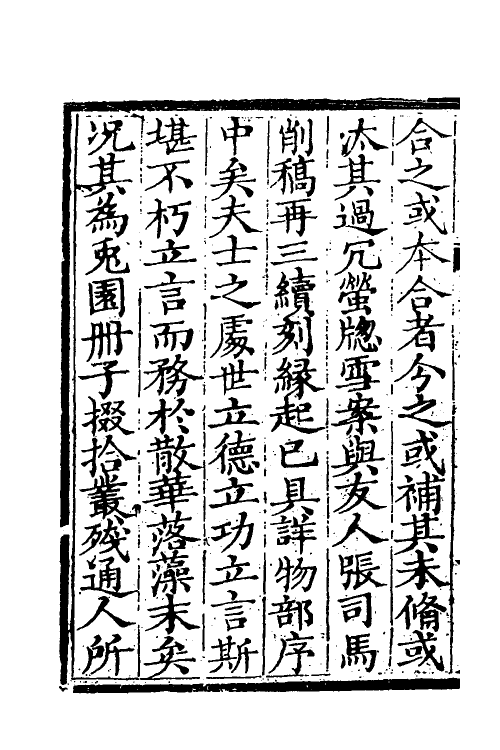 合之或本合者今之或補其未脩或
汰其過冗螢牕雪案與友人張司馬
削稿再三續刻縁起已具詳物部序
中矣夫士之處世立德立功立言斯
堪不朽立言而務於散華落藻末矣
况其為兎園冊子掇拾叢殘通人所